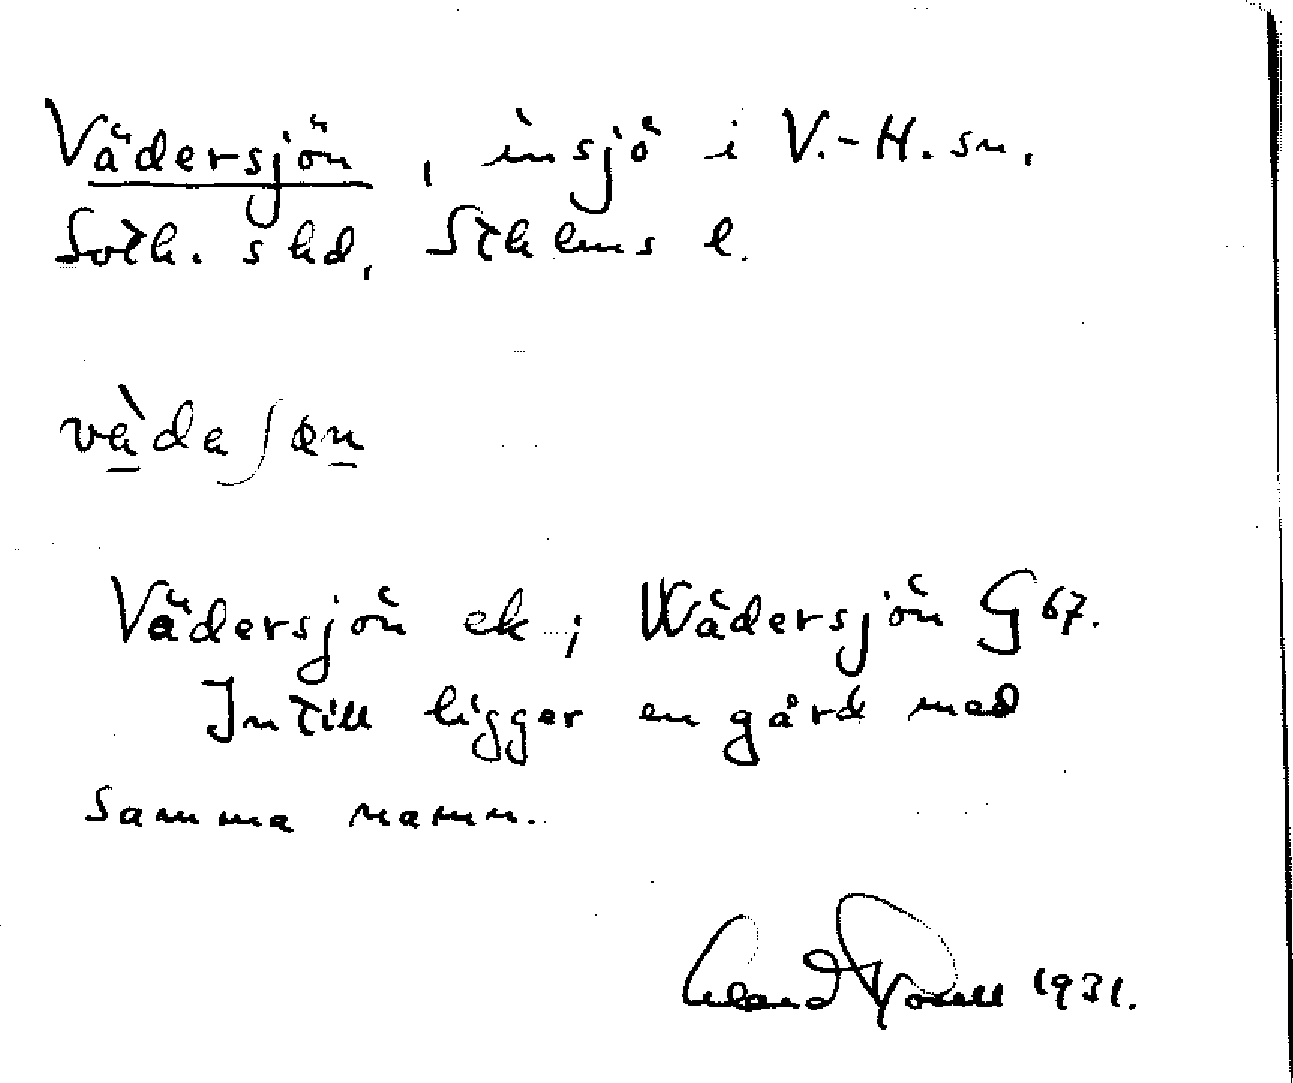 Vädersjön, insjö i V.-H. sn,
Soth. skd, Sthlms l.
Vädersjön ek; Wädersjön G 67.
Intill ligger en gård med
samma namn.
1931.